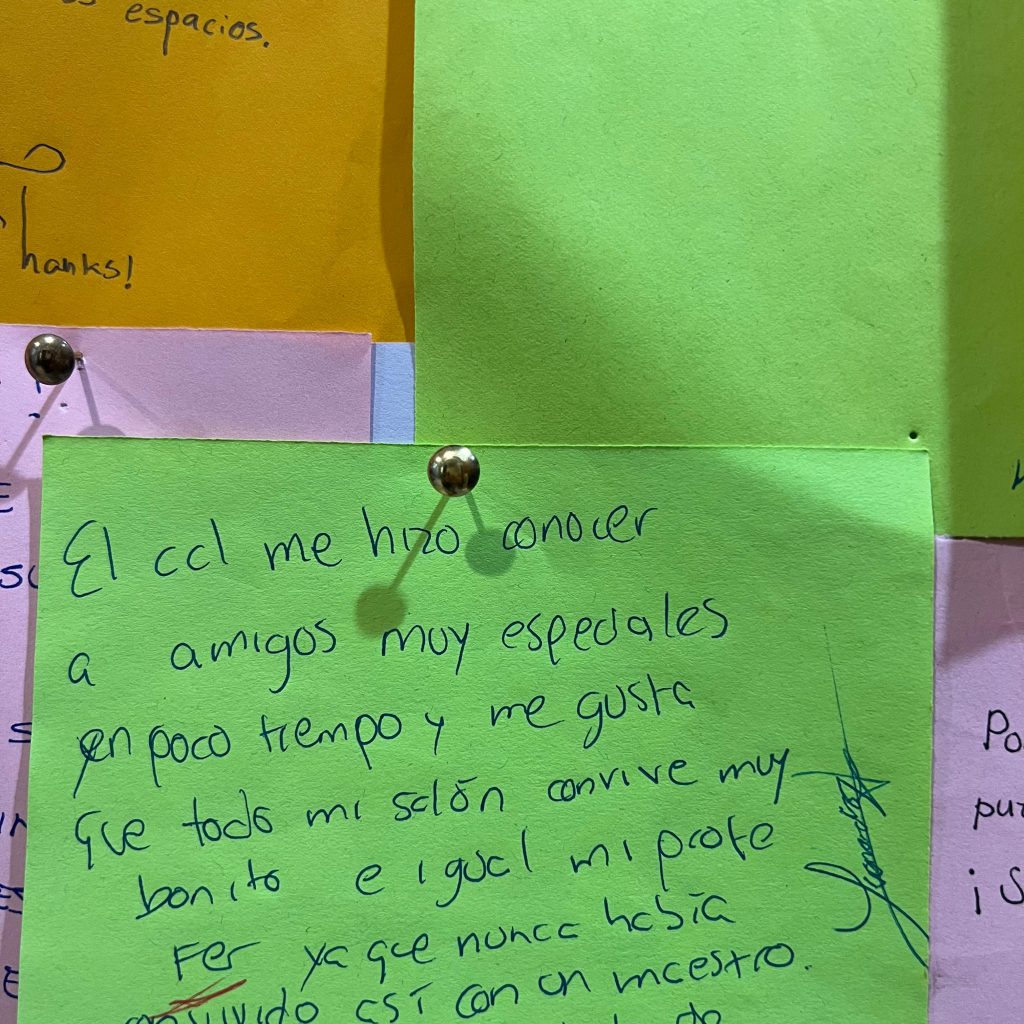 espacios.
Thanks!
El ccl me hizo conocer
a amigos muy especiales
en poco tiempo y me gusta
que todo mi salón convive muy
bonito e igual mi profe
Fer ya que nunca había
convivido así con un maestro.
Po
pur
¡S